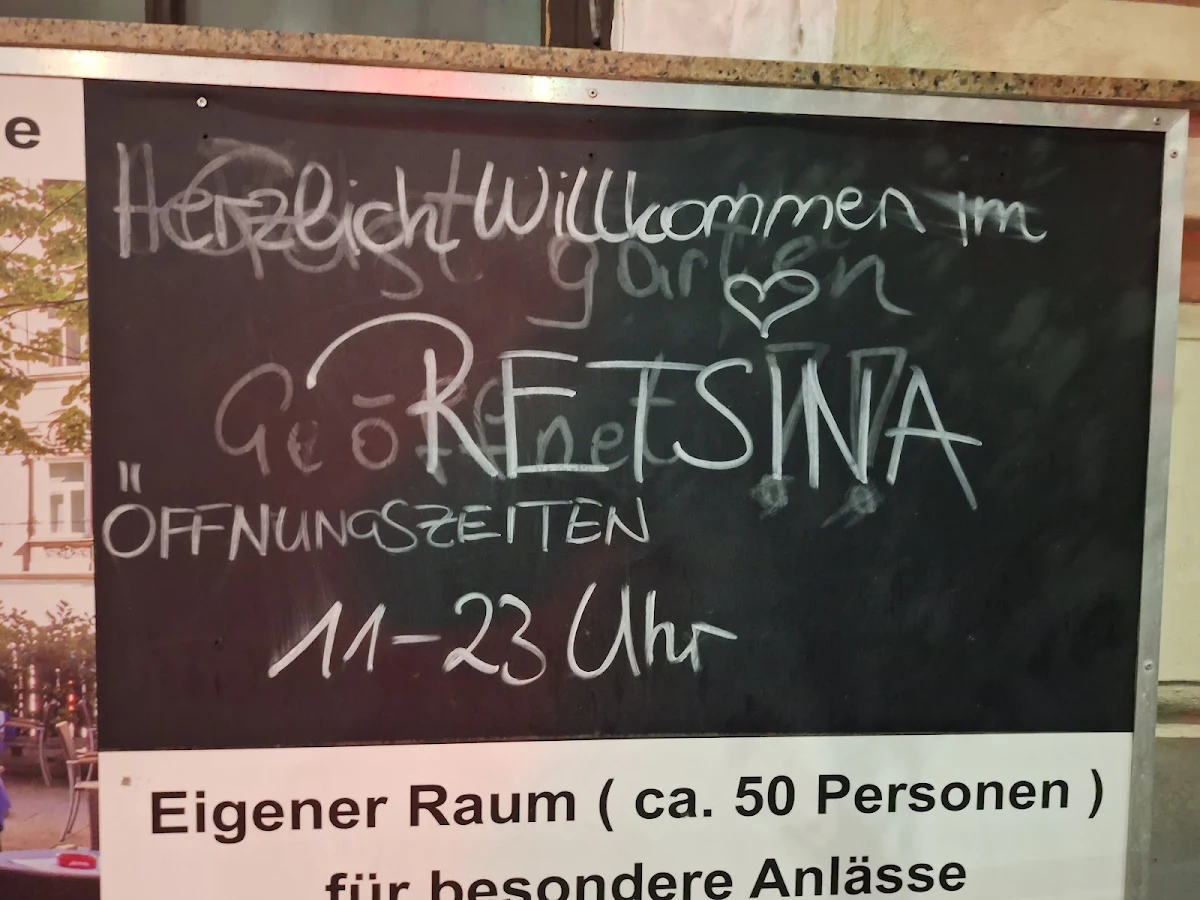 e
Herzlich Willkommen im
garten
RETSINA
Geöffnet
ÖFFNUNGSZEITEN
11-23 Uhr
Eigener Raum ( ca. 50 Personen )
für besondere Anlässe